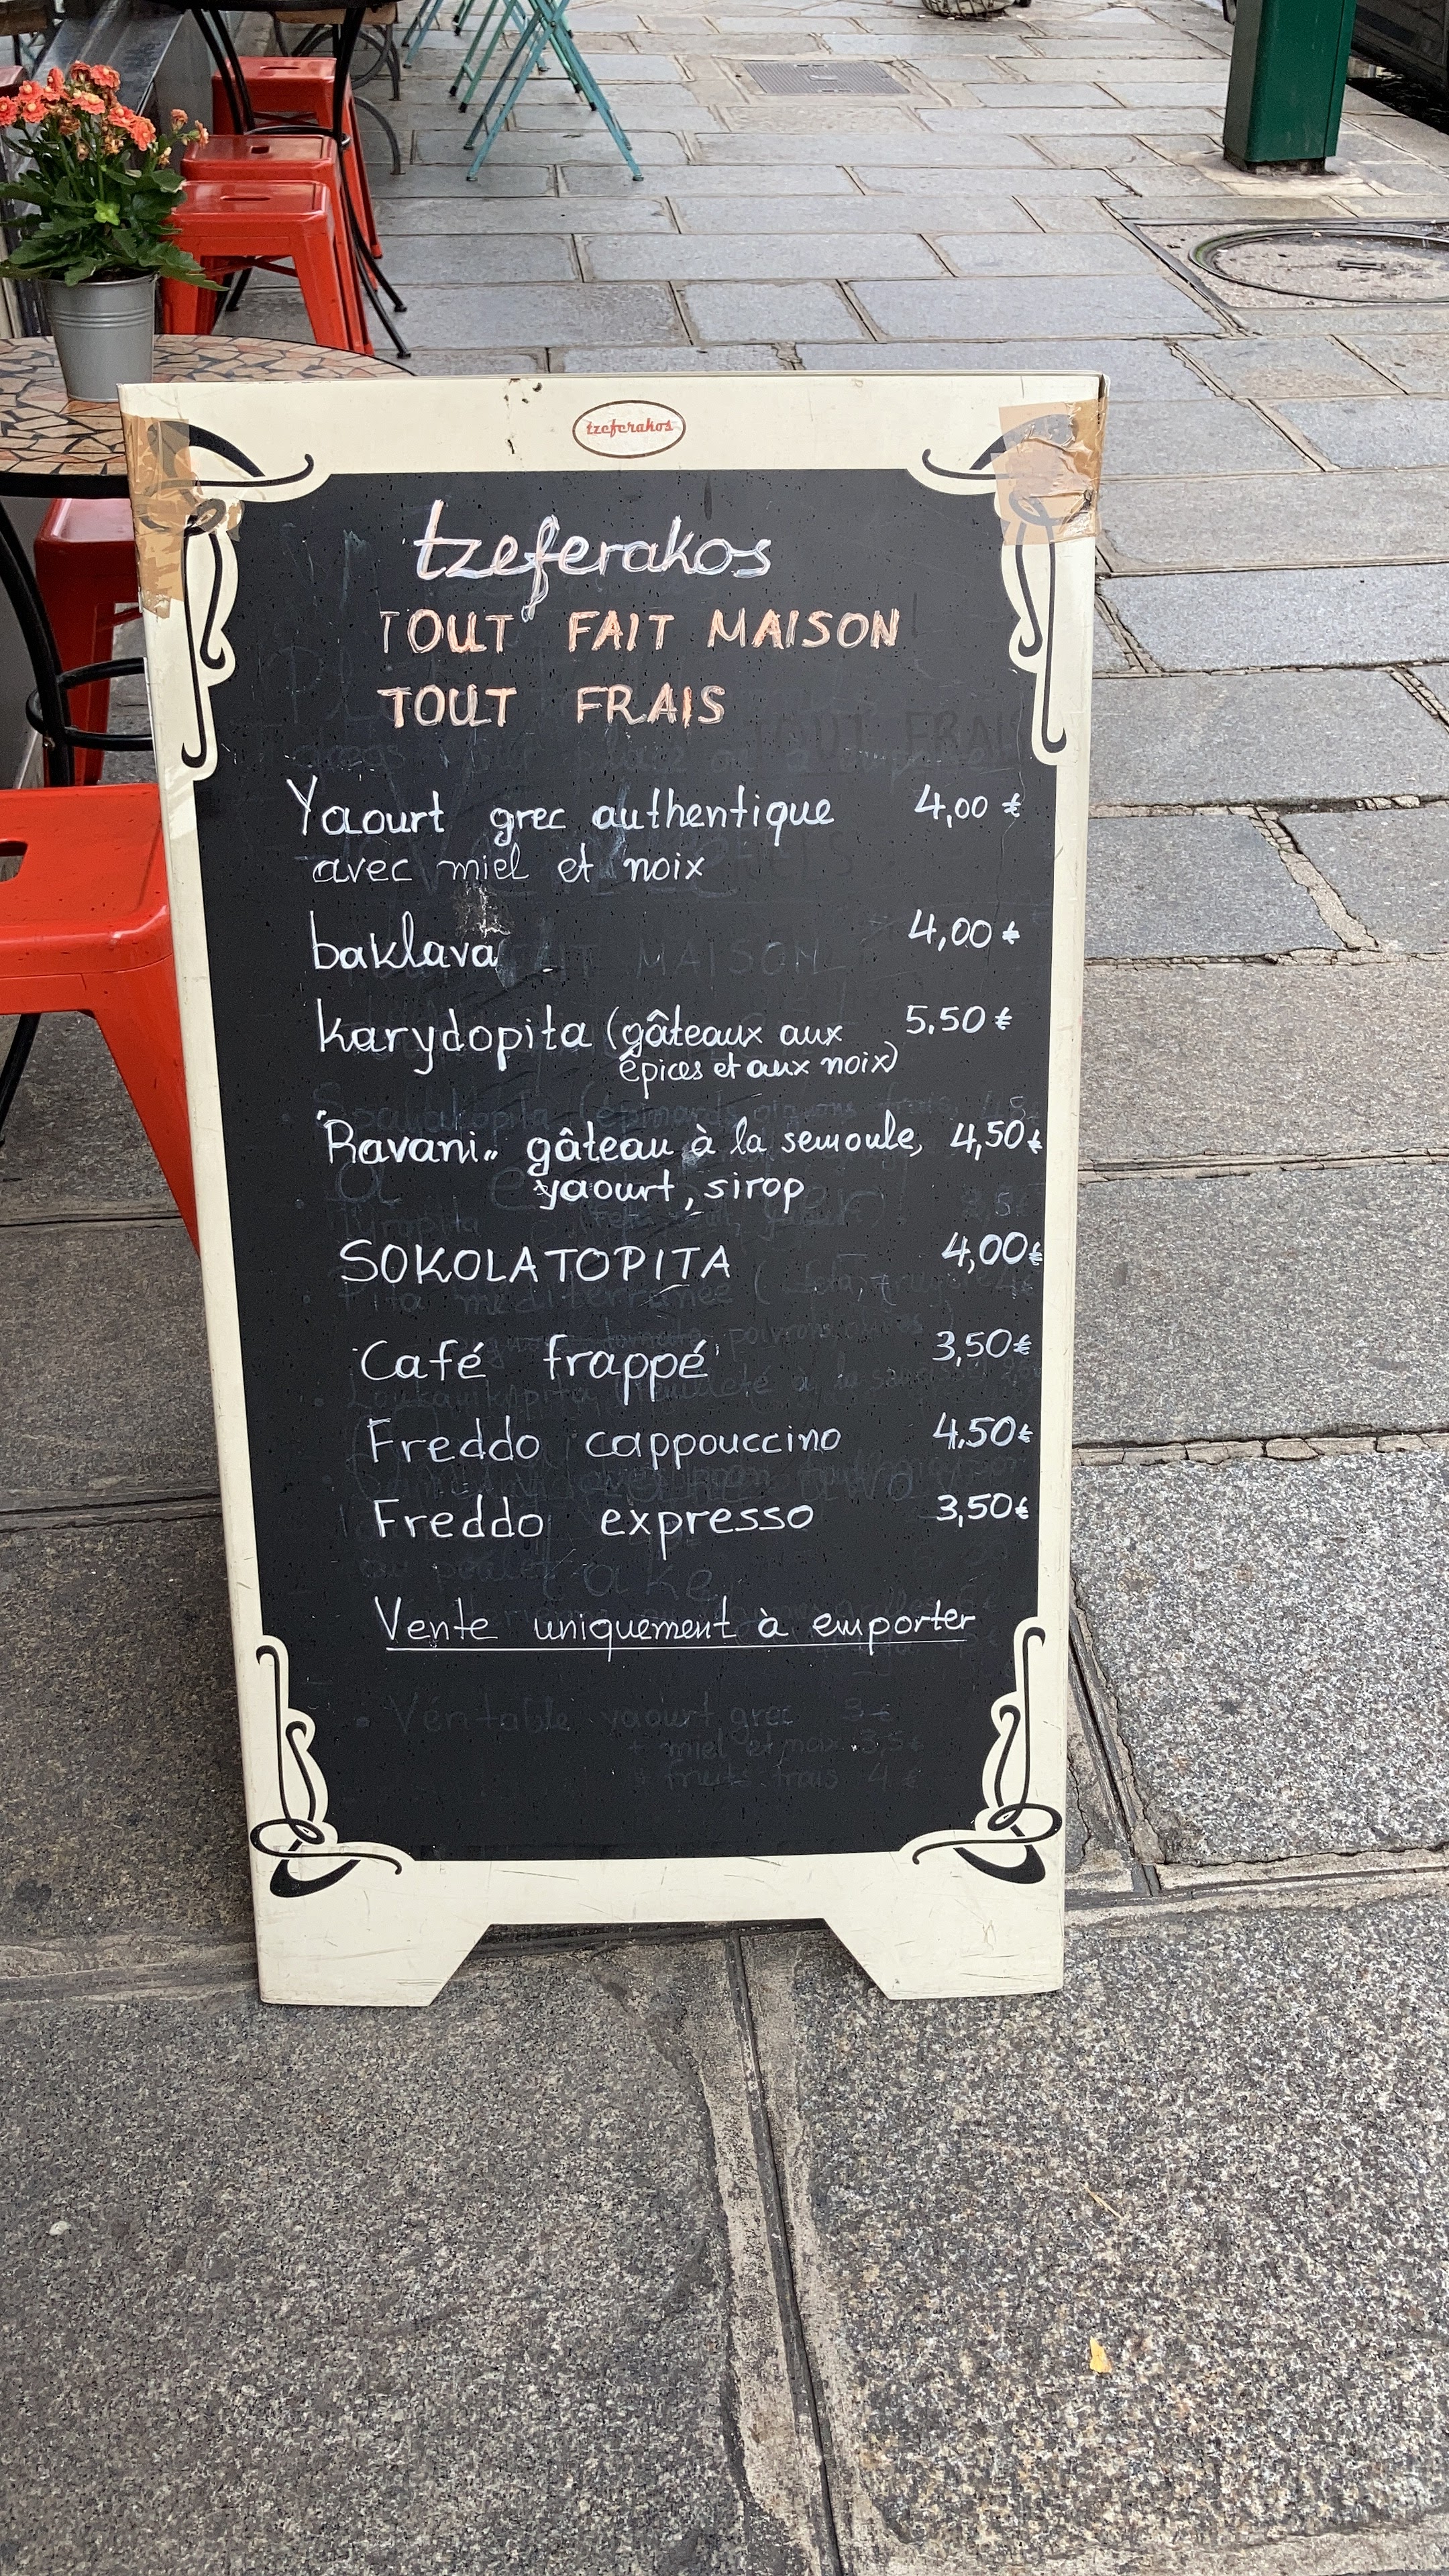 tzeferakos
tzeferakos
TOUT FAIT MAISON
TOUT FRAIS
Yaourt grec authentique 4,00 €
avec miel et noix
baklava 4,00 €
karydopita (gâteaux aux 5,50 €
épices et aux noix)
"Ravani" gâteau à la semoule, 4,50 €
yaourt, sirop
SOKOLATOPITA 4,00 €
Café frappé 3,50 €
Freddo cappouccino 4.50 €
Freddo expresso 3,50 €
Vente uniquement à emporter
Véritable yaourt grec 3 €
+ miel et noix 3,5 €
+ fruits frais 4 €